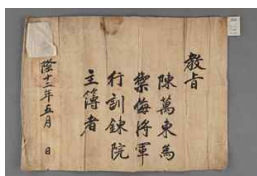 教旨
陳萬東為
禦侮將軍
行訓鍊院
主簿者
隆十二年五月　日